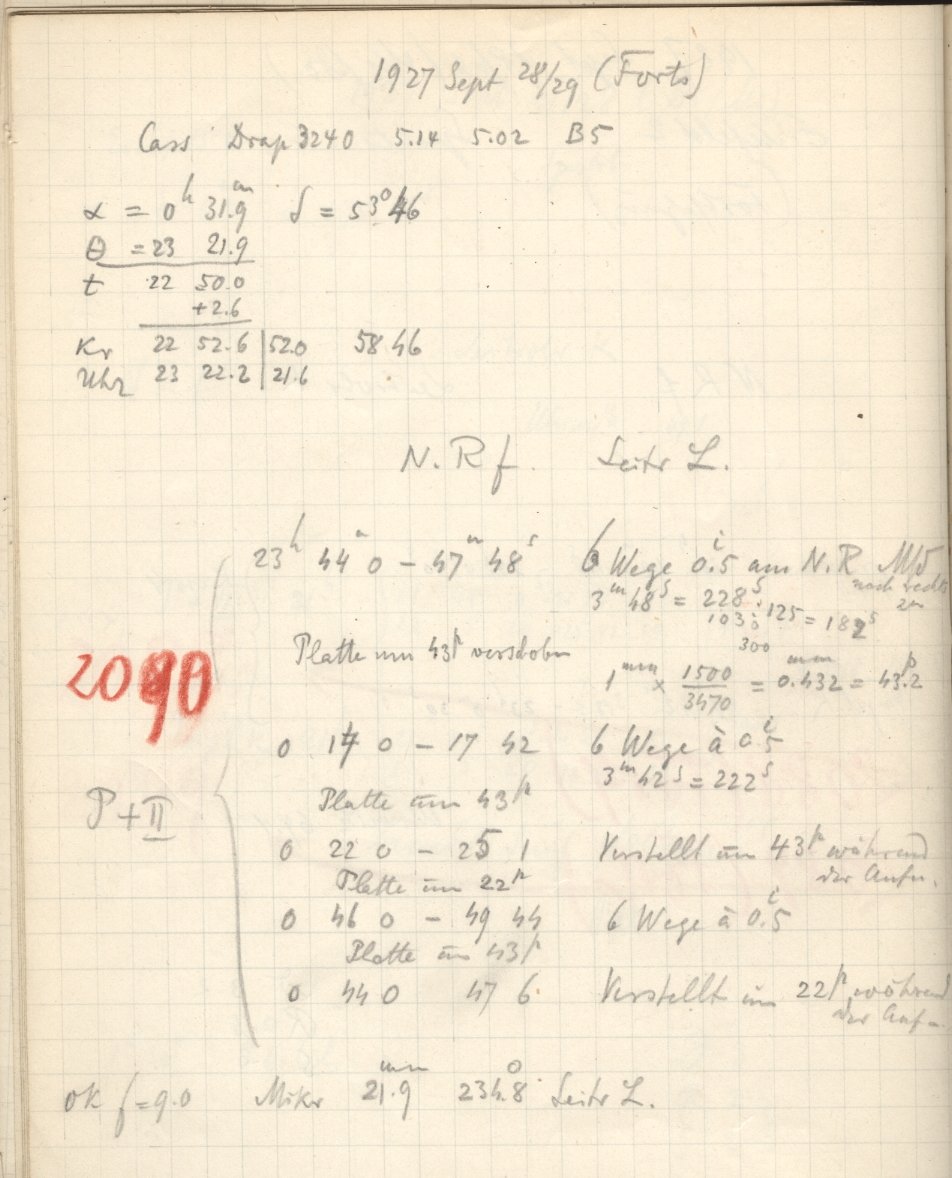 1927 Sept 28/29 (Forts)
Cass Drap 3240 5.14 5.02 B5
α = 0h 31.9m δ = 53° 46
θ = 23 21.9
t 22 50.0
+2.6
Kr 22 52.6 | 52.0 58 46
Uhr 23 22.2 | 21.6
N. R f. Seite L.
23h 44m 0 – 47m 48s 6 Wege 0.5 am N.R
nach rechts
3m 48s = 228s : 125 = 182s
103
300
Platte um 43μ verschoben
1mm × 1500/3470 = 0.432mm = 43.2p
2090
0 14 0 – 17 42 6 Wege à 0.5
3m 42s = 222s
Platte um 43μ
P + II
0 22 0 – 25 1 Verstellt um 43μ während
der Aufn.
Platte um 22μ
0 46 0 – 49 44 6 Wege à 0.5
Platte um 43μ
0 44 0 47 6 Verstellt um 22μ während
der Auf-
ok f = 9.0 Mikr 21.9mm 234.8° Seite L.